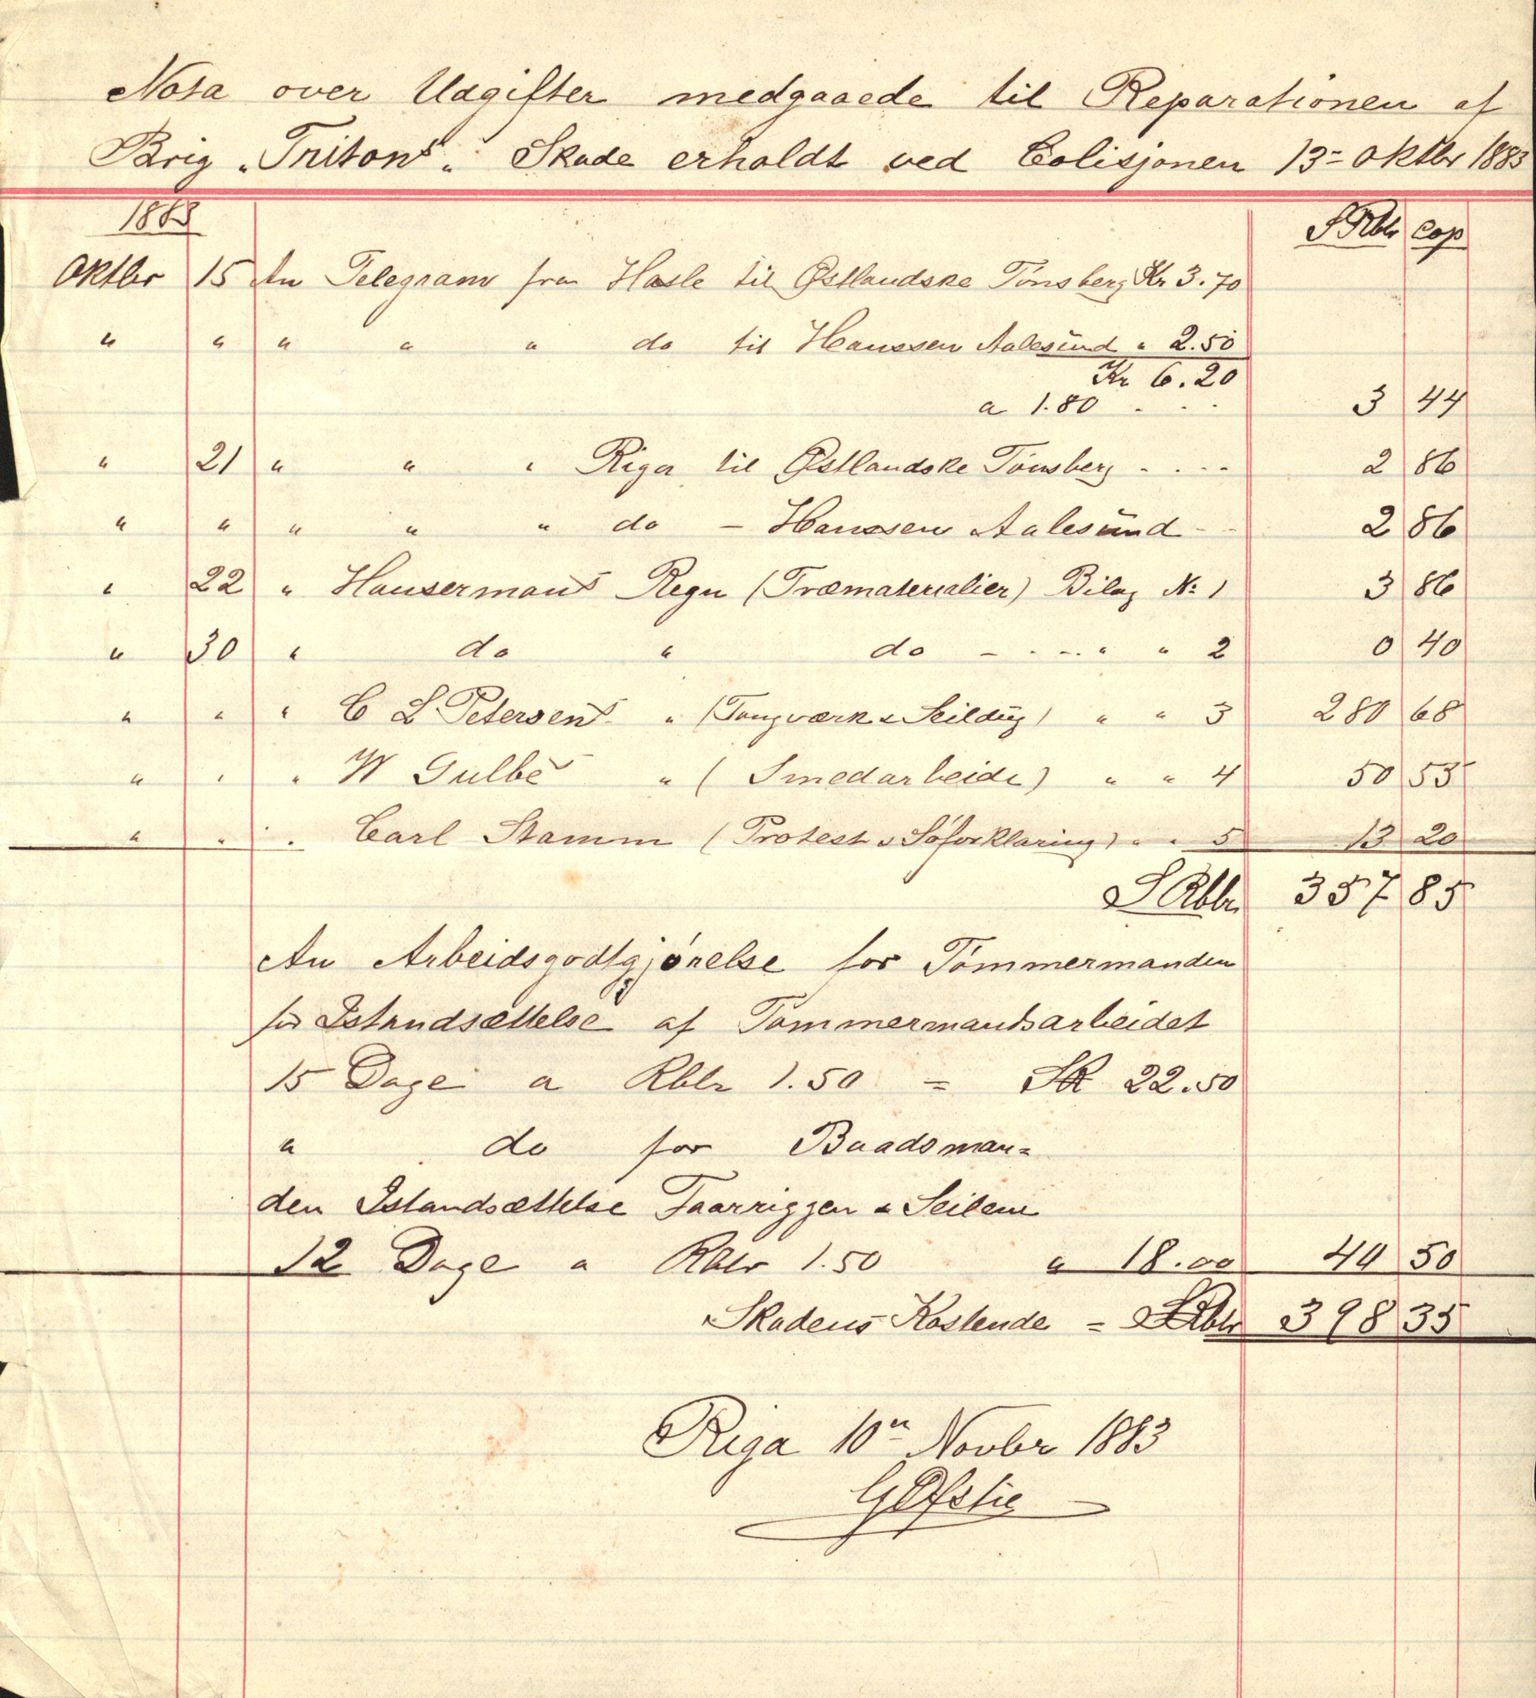 Nota over Udgifter medgaaede til Reparationen af
Brig "Tritons" Skade erholdt ved Colisjonen 13= Oktbr 1883
1883 SRblr Cop
Oktbr 15 An Telegram fra Hasle til Østlandske Tönsberg Kr 3.70
" " " " " do til Hanssen Aalesund " 2.50
Kr 6.20
a 1.80 . . . 3 44
" 21 " " " Riga til Østlandske Tönsberg . . . . 2 86
" " " " " do – Hanssen Aalesund – 2 86
" 22 " Hausermans Regn (Træmaterialier) Bilag No 1 3 86
" 30 " do " do – . – . . " " 2 0 40
" " " C L Petersens " (Tougværk & Seildug) " " 3 280 68
" " " W Gulbe " (Smedarbeide) " " 4 50 55
" " " Carl Stamm (Protest & Söforklaring) " " 5 13 20
SRblr 357 85
An Arbeidsgodtgjörelse for Tömmermanden
for Istandsættelse af Tømmermandsarbeidet
15 Dage a Rblr 1.50 = SR 22.50
" do for Baadsman=
den Istandsættelse Taarriggen & Seilene
12 Dage a Rblr 1.50 " 18.00 40 50
Skadens Kostende = SRblr 398 35
Riga 10n Novbr 1883
G Ofstie